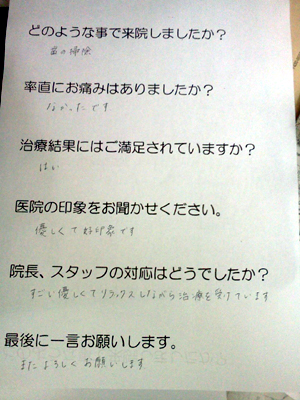 どのような事で来院しましたか?
歯の掃除
率直にお痛みはありましたか?
なかったです
治療結果にはご満足されていますか?
はい
医院の印象をお聞かせください。
優しくて好印象です
院長、スタッフの対応はどうでしたか?
すごい優しくてリラックスしながら治療を受けています
最後に一言お願いします。
またよろしくお願いします